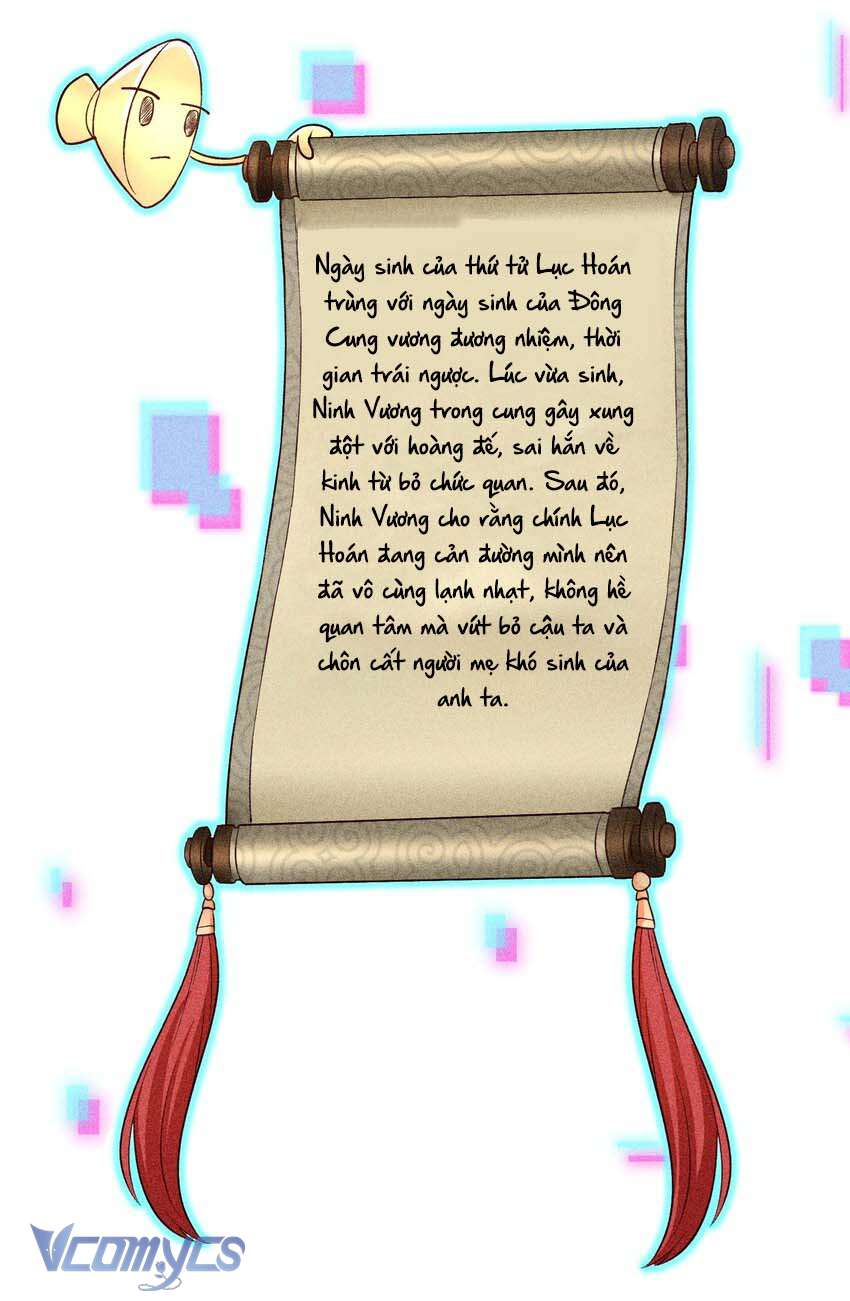 Ngày sinh của thứ tử Lục Hoán
trùng với ngày sinh của Đông
Cung vương đương nhiệm, thời
gian trái ngược. Lúc vừa sinh,
Ninh Vương trong cung gây xung
đột với hoàng đế, sai hắn về
kinh từ bỏ chức quan. Sau đó,
Ninh Vương cho rằng chính Lục
Hoán đang cản đường mình nên
đã vô cùng lạnh nhạt, không hề
quan tâm mà vứt bỏ cậu ta và
chôn cất người mẹ khó sinh của
anh ta.
Vcomycs